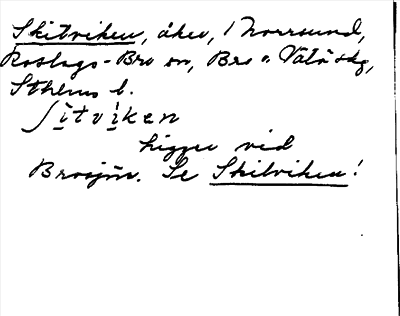 Skitviken, åker, 1 Norrsund,
Roslags-Bro sn, Bro o. Vätö skg,
Sthlms l.
ʃitviken
ligger vid
Brosjön. Se Skitviken!